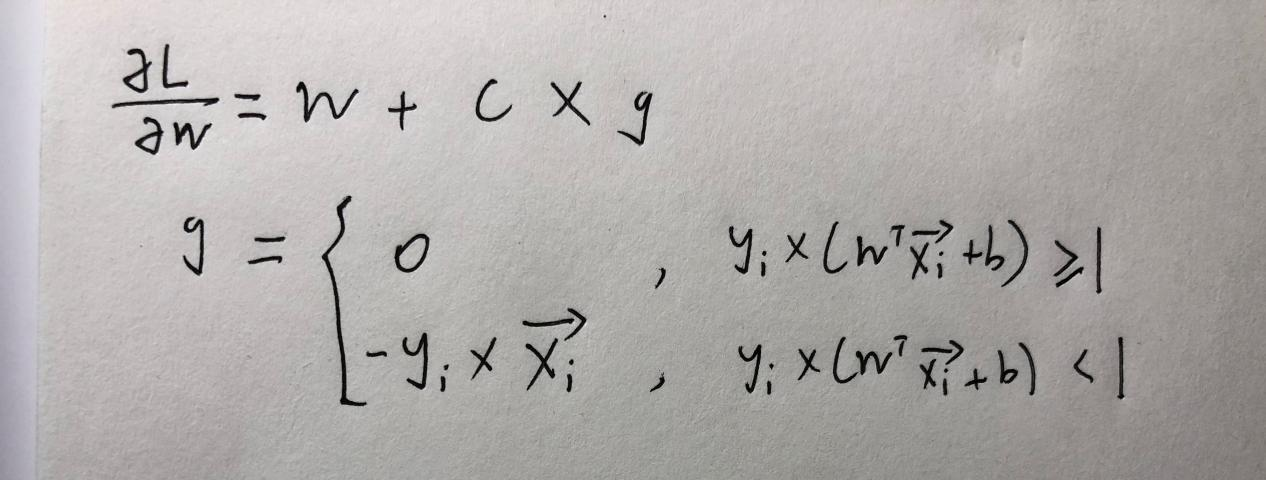 ∂L/∂w = w + C × g
g = { 0 , yᵢ × (wᵀx⃗ᵢ + b) ⩾ 1
-yᵢ × x⃗ᵢ , yᵢ × (wᵀx⃗ᵢ + b) < 1